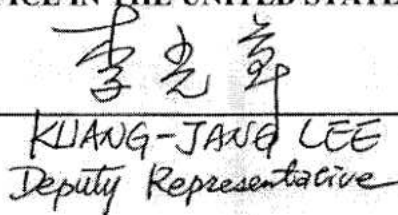 OFFICE IN THE UNITED STATES
李光章
KUANG-JANG LEE
Deputy Representative